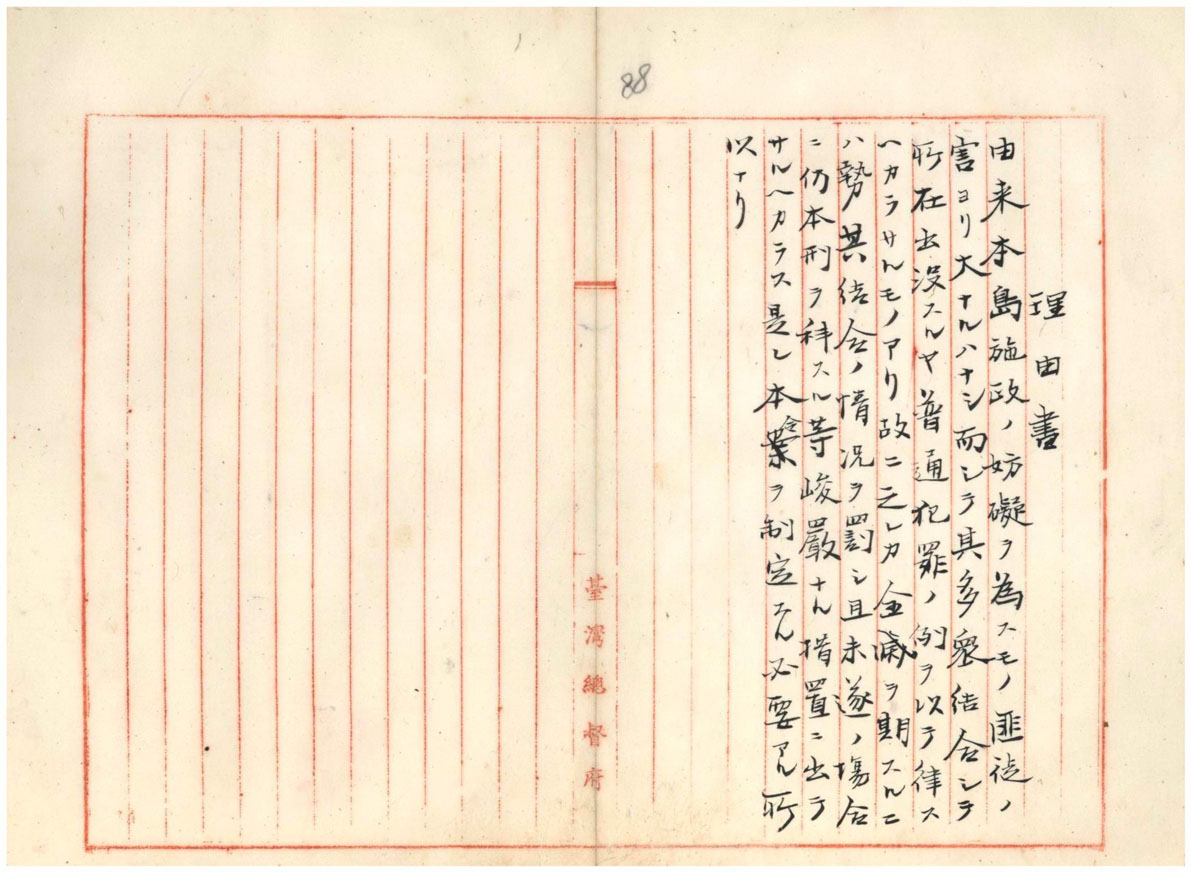 88
理由書
由来本島施政ノ妨礙ヲ為スモノ匪徒ノ
害ヨリ大ナルハナシ而シテ其多衆結合シテ
所在出没スルヤ普通犯罪ノ例ヲ以テ律ス
ヘカラサルモノアリ故ニ之レカ全滅ヲ期スルニ
ハ勢其結合ノ情况ヲ罰シ且未遂ノ場合
ニ仍本刑ヲ科スル等峻嚴ナル措置ニ出テ
サルヘカラス是レ本令ヲ制定スル必要アル所
以ナリ
臺灣總督府